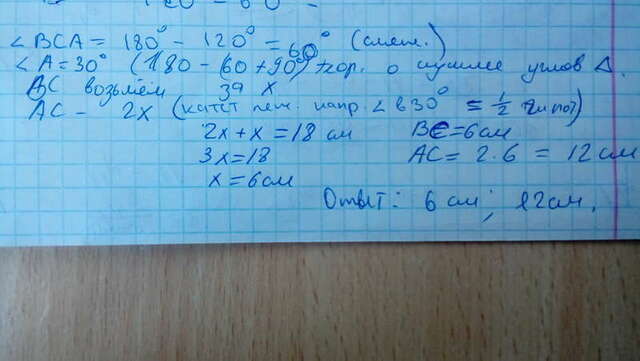 ∠BCA = 180° - 120° = 60° (смеж.)
∠A = 30° (180 - (60 + 90°) теор. о сумме углов Δ.
BC возьмём за x
AC - 2x (катет леж. напр. ∠ в 30° = 1/2 гипот)
2x + x = 18 см BC = 6см
3x = 18 AC = 2·6 = 12 см
x = 6см
Ответ: 6 см; 12см.